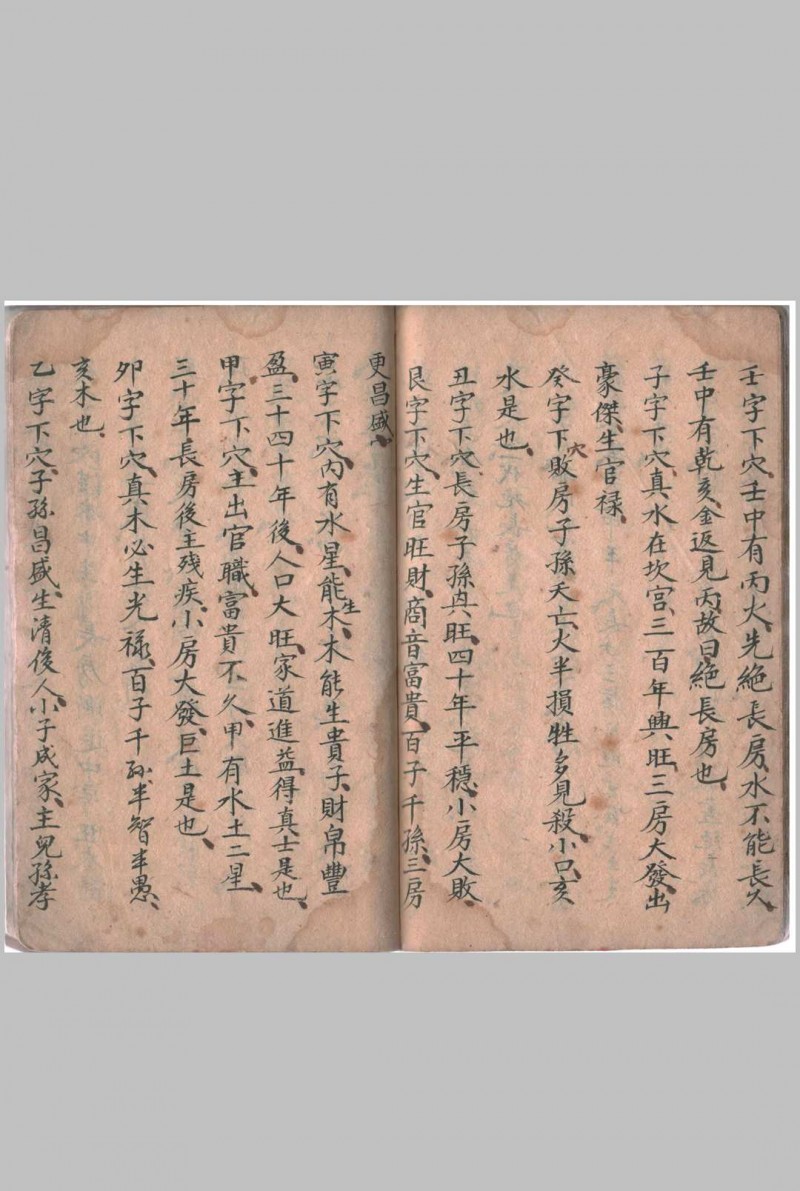 壬字下穴、壬中有丙火、先絕長房、水不能長久、
壬中有乾亥、金返見丙、故曰絕長房也、
子字下穴、真水在坎宮、三百年興旺、三房大發、出
豪傑、生官禄、
癸字下穴敗房子孫夭亡、火半損牲多見殺、小口亥
水是也、
丑字下穴、長房子孫興、旺四十年平穩、小房大敗、
艮字下穴、生官旺財、商音富貴、百子千孫、三房
更昌盛、
寅字下穴、內有水星、能生木、木能生貴子、財帛豐
盈、三十四十年後、人口大旺、家道進益、得真士是也、
甲字下穴、主出官職、富貴不久、甲有水土二星、
三十年長房後主残疾、小房大發、巨土是也、
卯字下穴、真木必生光禄、百子千孫、半智半愚、
亥木也、
乙字下穴、子孫昌盛、生清俊人、小子成家、主兒孫孝